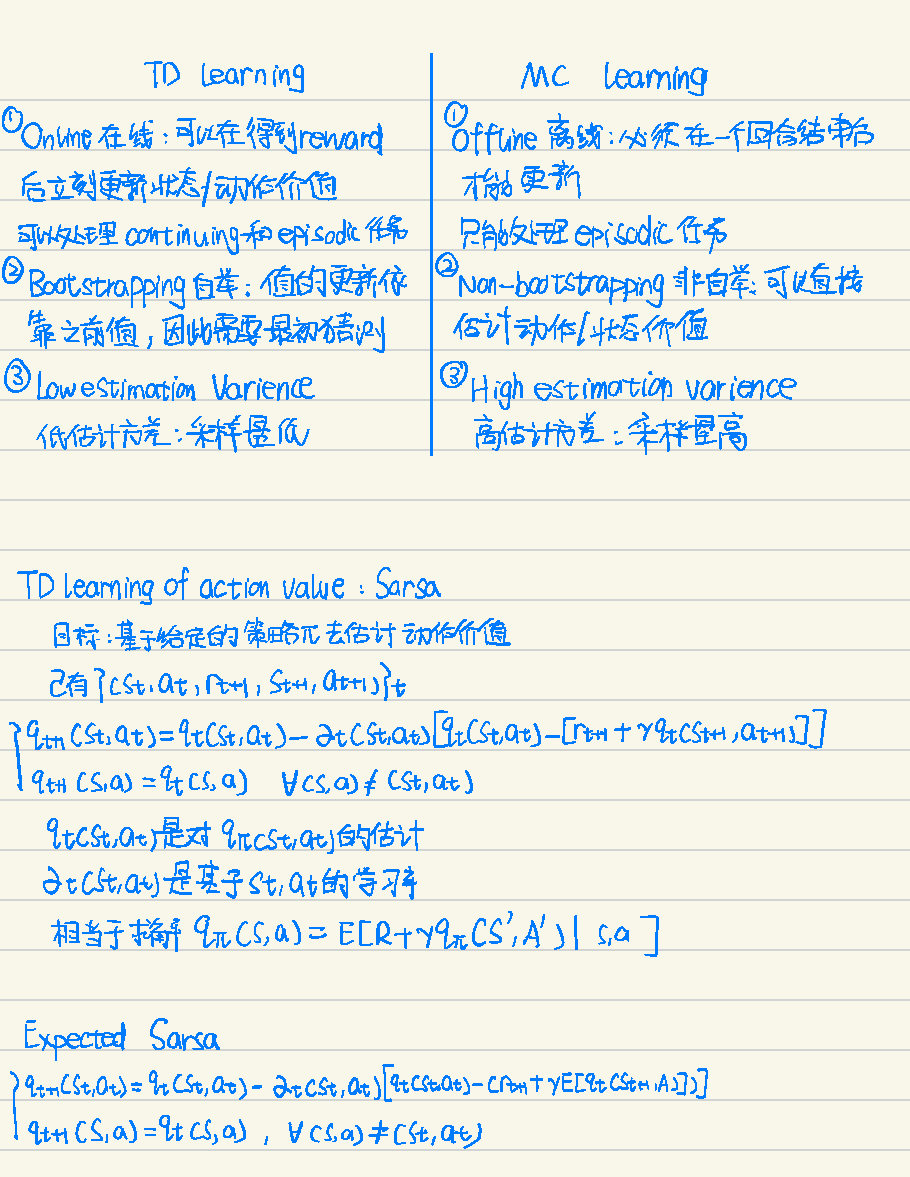 TD Learning
① Online 在线：可以在得到reward
后立刻更新状态/动作价值
可以处理 continuing和episodic任务
② Bootstrapping 自举：值的更新依
靠之前值，因此需要最初猜测
③ Low estimation Varience
低估计方差：采样量低
MC Learning
① Offline 离线：必须在一个回合结束后
才能更新
只能处理 episodic任务
② Non-bootstrapping 非自举：可以直接
估计动作/状态价值
③ High estimation varience
高估计方差：采样量高
TD learning of action value : Sarsa
目标：基于给定的策略π去估计动作价值
已有{(st, at, rt+1, st+1, at+1)}t
qt+1(st, at) = qt(st, at) - αt(st, at)[qt(st, at) - [rt+1 + γqt(st+1, at+1)]]
qt+1(s, a) = qt(s, a) ∀(s, a) ≠ (st, at)
qt(st, at)是对 qπ(st, at)的估计
αt(st, at)是基于st, at的学习率
相当于求解 qπ(s, a) = E[R + γqπ(S', A') | s, a]
Expected Sarsa
qt+1(st, at) = qt(st, at) - αt(st, at)[qt(st, at) - (rt+1 + γE[qt(st+1, A)])]
qt+1(s, a) = qt(s, a) , ∀(s, a) ≠ (st, at)